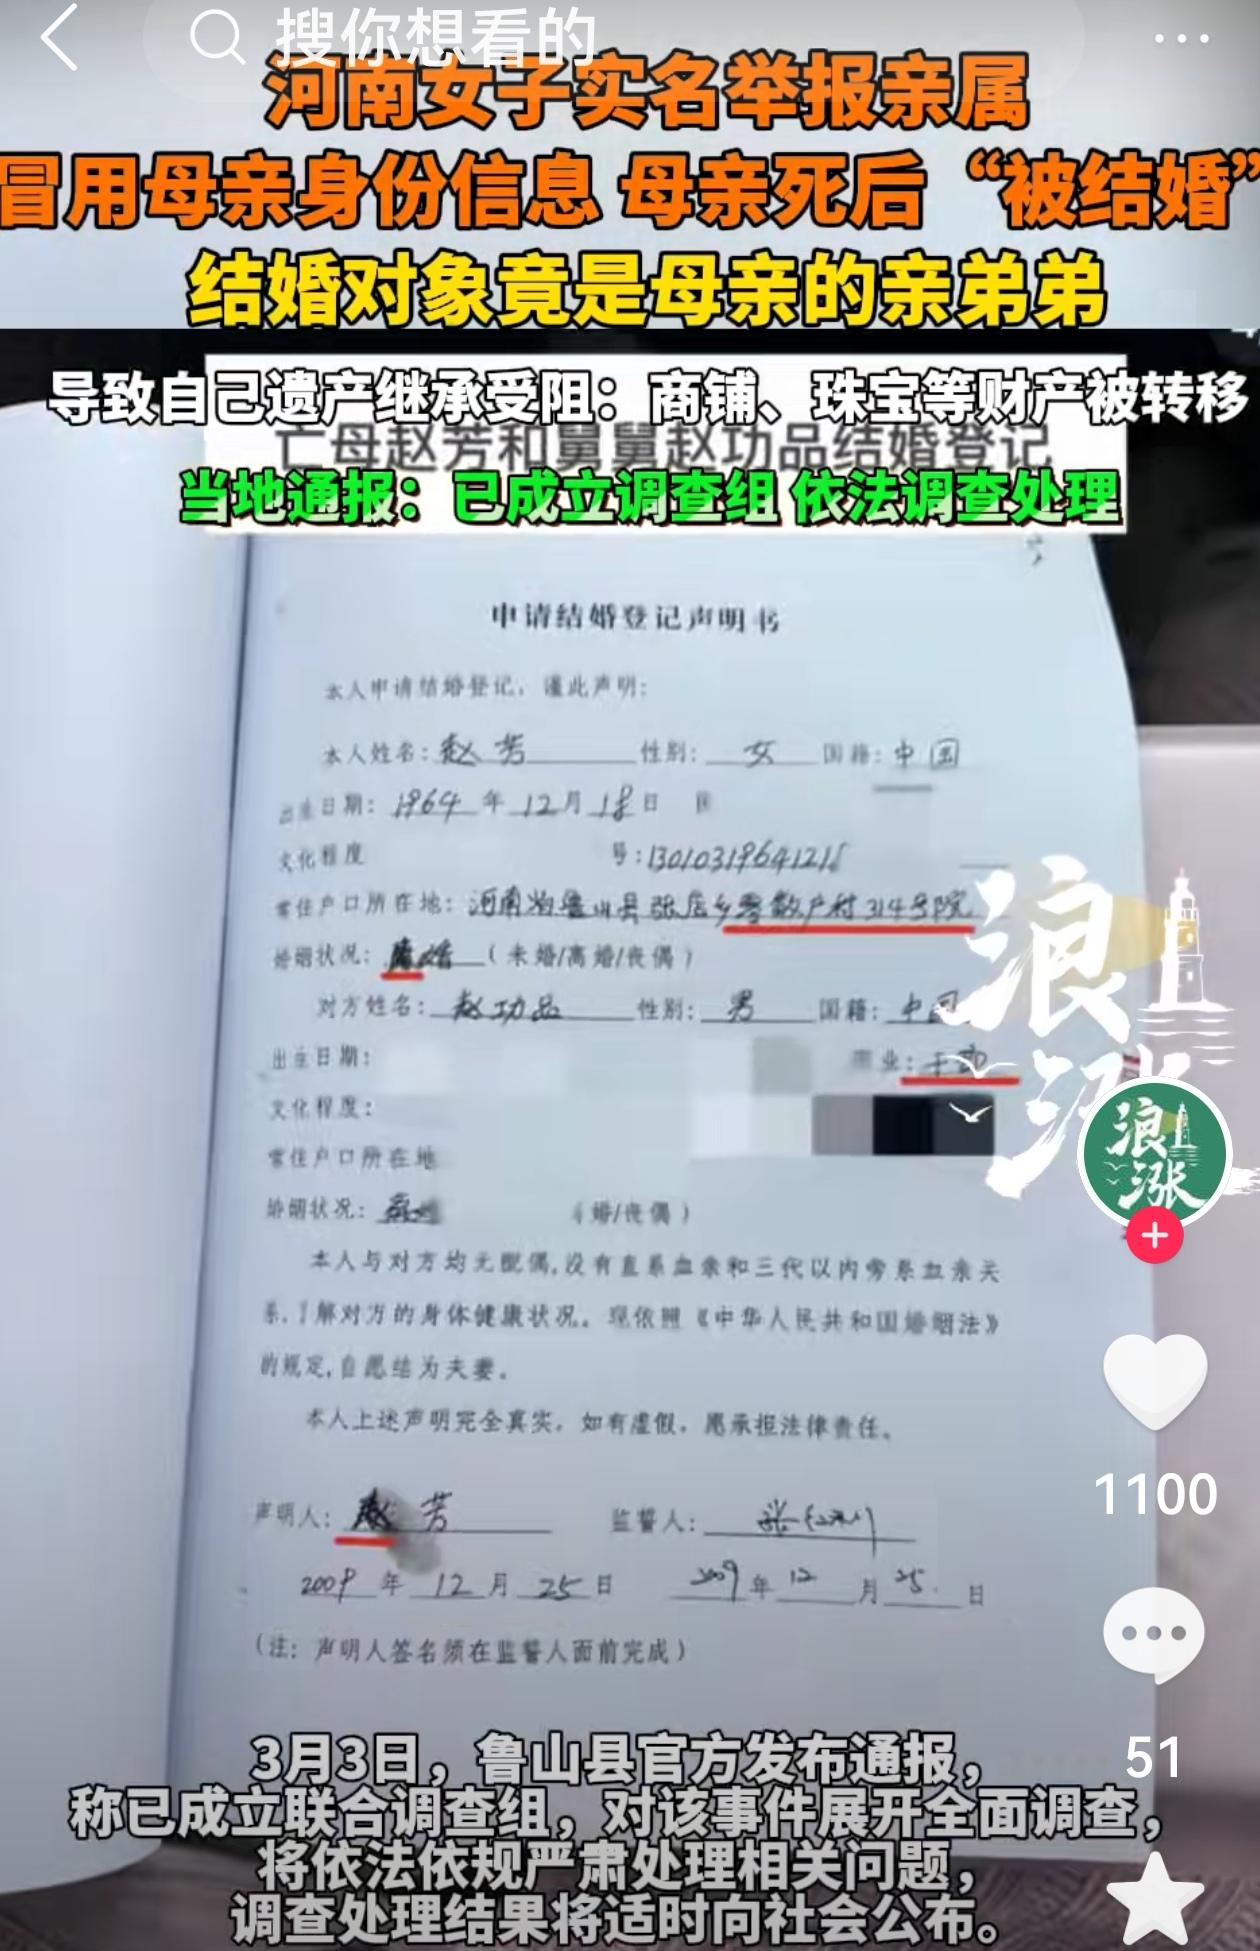 搜你想看的
河南女子实名举报亲属
冒用母亲身份信息 母亲死后“被结婚”
结婚对象竟是母亲的亲弟弟
导致自己遗产继承受阻：商铺、珠宝等财产被转移
亡母赵芳和舅舅赵功品结婚登记
当地通报：已成立调查组 依法调查处理
申请结婚登记声明书
本人申请结婚登记，谨此声明：
本人姓名：赵芳 性别：女 国籍：中国
出生日期：1964年12月18日
文化程度 号：13010319641218
常住户口所在地：河南省鲁山县张店乡 314号院
婚姻状况：离婚（未婚/离婚/丧偶）
对方姓名：赵功品 性别：男 国籍：中国
出生日期： 业：干部
文化程度：
常住户口所在地
婚姻状况： 婚/丧偶）
本人与对方均无配偶,没有直系血亲和三代以内旁系血亲关
系,了解对方的身体健康状况。现依照《中华人民共和国婚姻法》
的规定,自愿结为夫妻。
本人上述声明完全真实，如有虚假，愿承担法律责任。
声明人：赵芳 监誓人：张
2009年12月25日 2009年12月25日
（注：声明人签名须在监誓人面前完成）
浪涨
浪涨
1100
51
3月3日，鲁山县官方发布通报，
称已成立联合调查组，对该事件展开全面调查，
将依法依规严肃处理相关问题，
调查处理结果将适时向社会公布。